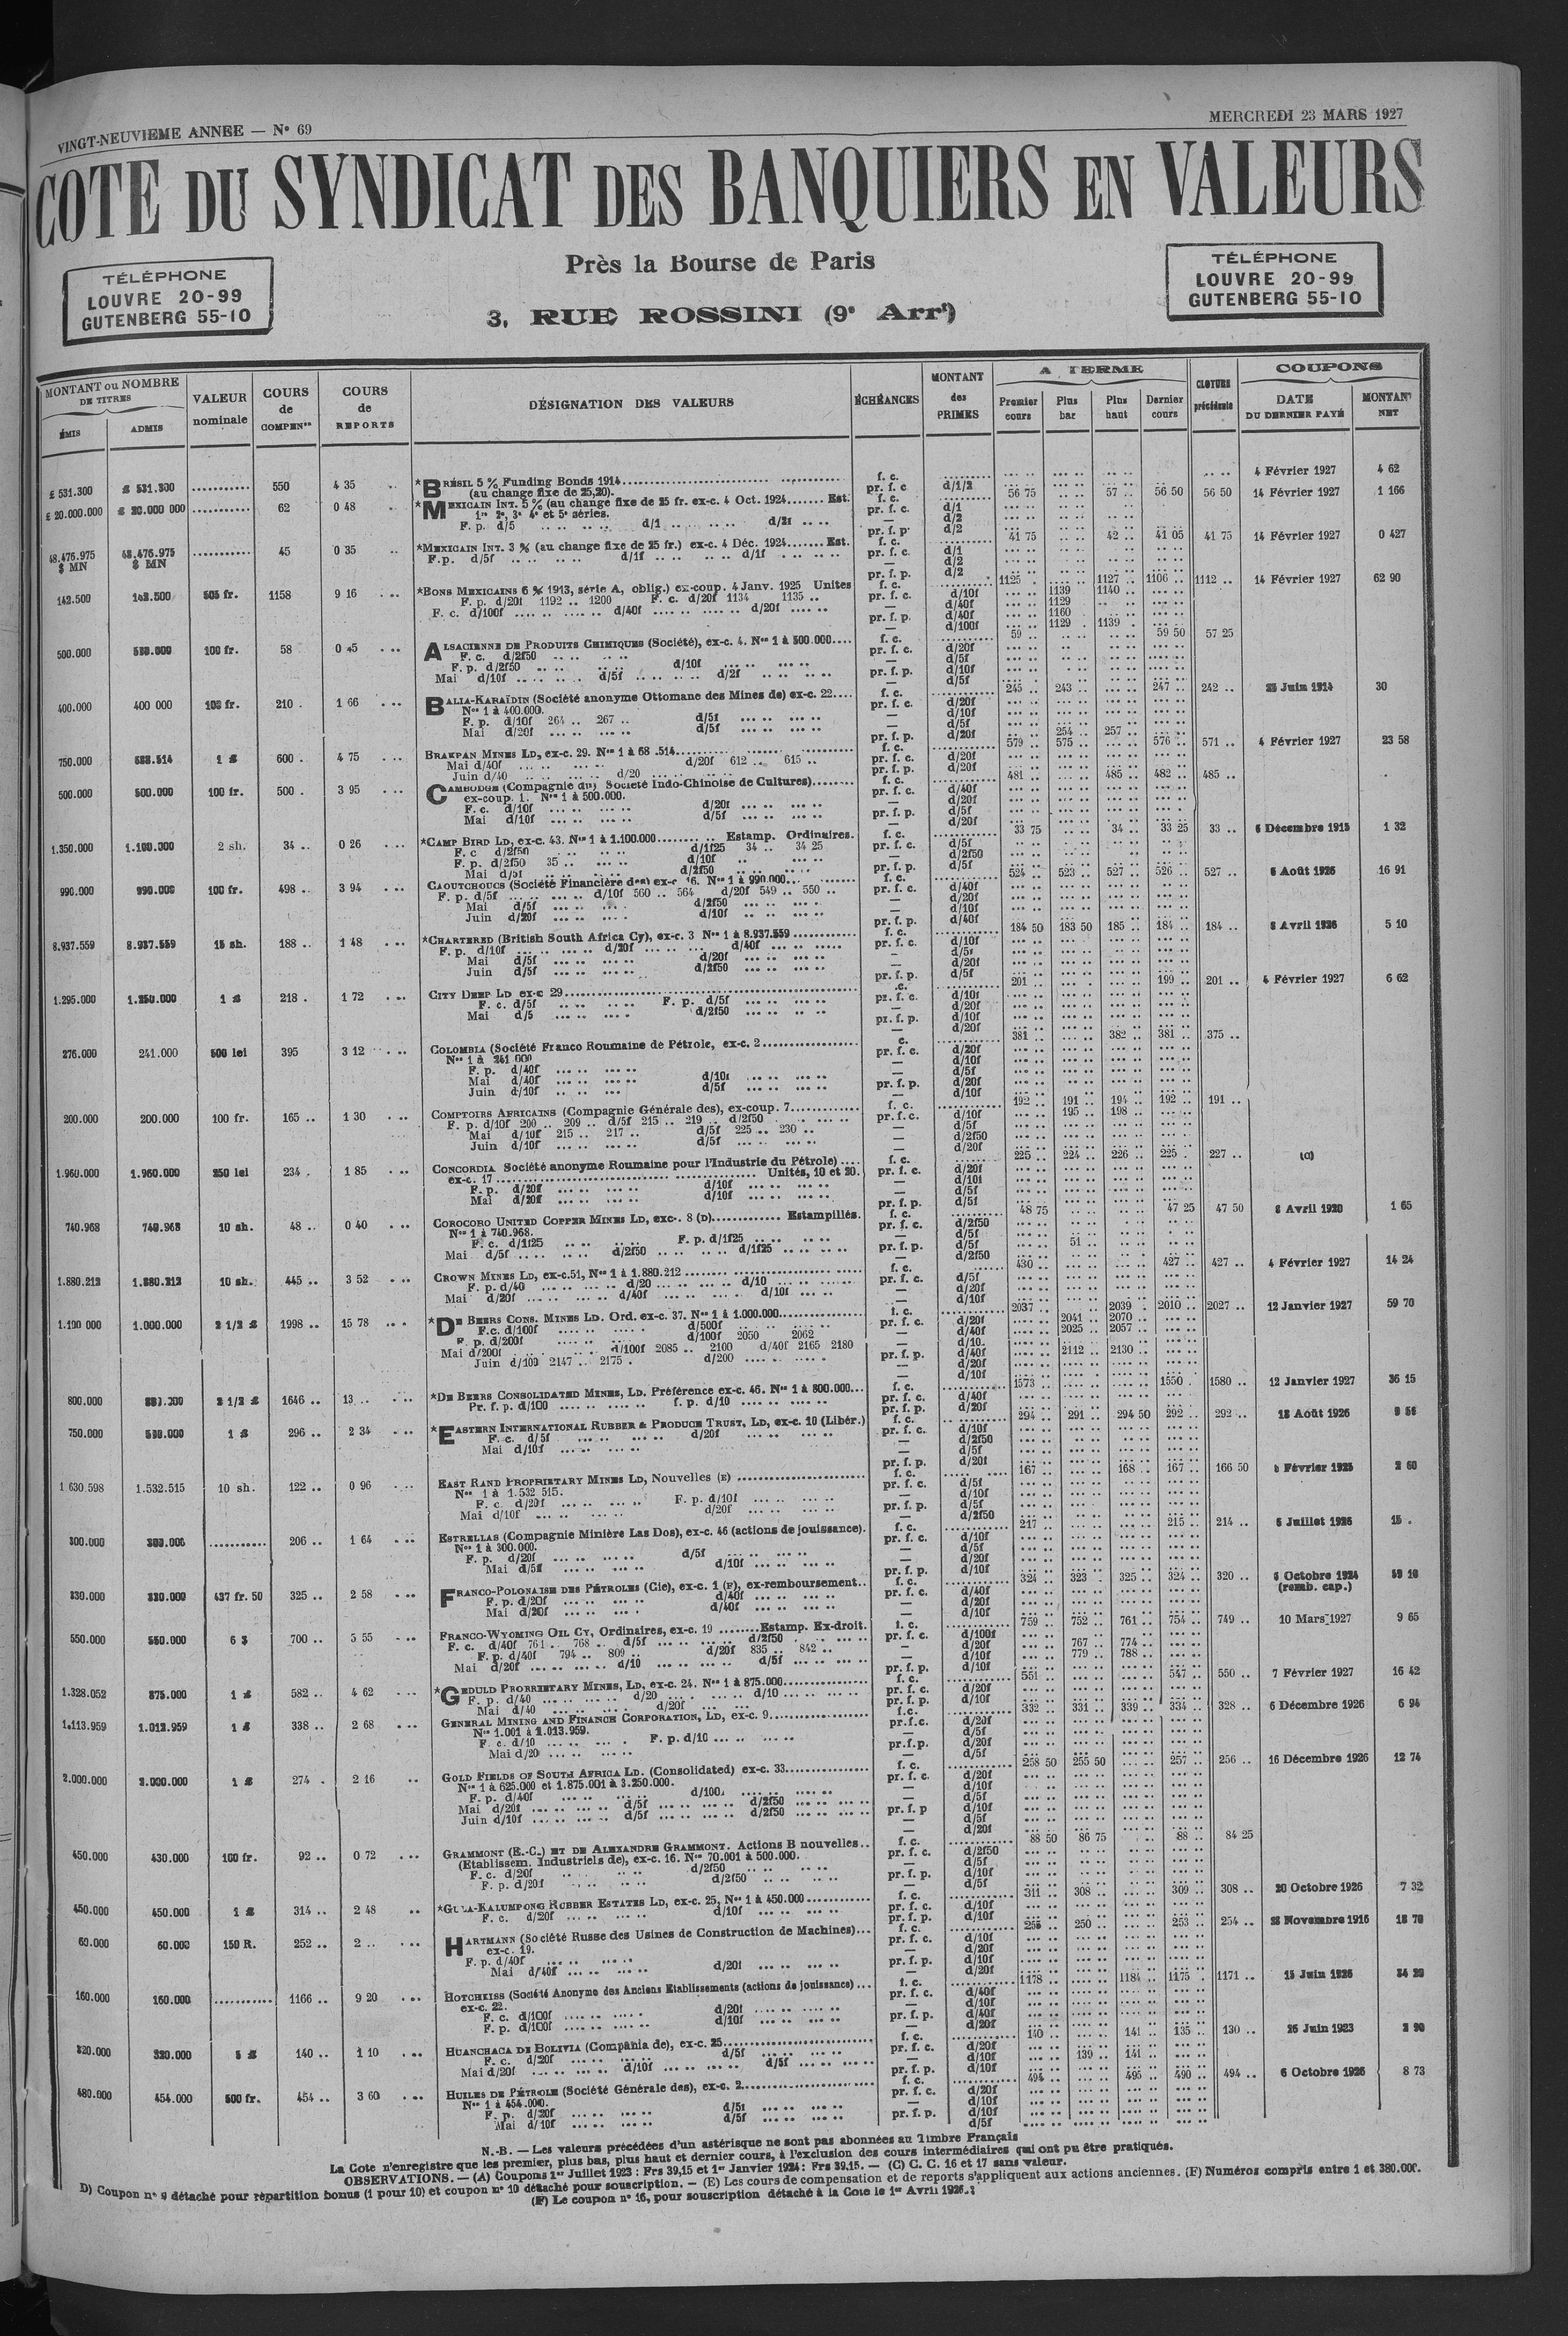 VINGT-NEUVIEME ANNEE — N° 69
MERCREDI 23 MARS 1927
COTE DU SYNDICAT DES BANQUIERS EN VALEURS
Près la Bourse de Paris
3, RUE ROSSINI (9e Arrt)
TÉLÉPHONE
LOUVRE 20-99
GUTENBERG 55-10
TÉLÉPHONE
LOUVRE 20-99
GUTENBERG 55-10
MONTANT ou NOMBRE DE TITRES
ÉMIS ADMIS
VALEUR nominale
COURS de COMPENon
COURS de REPORTS
DÉSIGNATION DES VALEURS
ÉCHÉANCES
MONTANT des PRIMES
A TERME
Premier cours Plus bar Plus haut Dernier cours
CLOTURE précédente
COUPONS
DATE DU DERNIER PAYÉ MONTANT NET
£ 531.300 £ 531.300 550 4 35 *BRÉSIL 5 % Funding Bonds 1914 f. c. 4 Février 1927 4 62
(au change fixe de 25,20). pr. f. c. d/1/2
£ 20.000.000 £ 20.000 000 62 0 48 *MEXICAIN INT. 5 % (au change fixe de 25 fr. ex-c. 4 Oct. 1924 Est. f. c. 56 75 57 56 50 56 50 14 Février 1927 1 166
1re 2e, 3e 4e et 5e séries. pr. f. c. d/1
F. p. d/5 d/1 d/2f — d/2
pr. f. p. d/2
48.476.975 $ MN 48.476.975 $ MN 45 0 35 *MEXICAIN INT. 3 % (au change fixe de 25 fr.) ex-c. 4 Déc. 1924 Est. f. c. 41 75 42 41 05 41 75 14 Février 1927 0 427
F.p. d/5f d/1f d/1f pr. f. c. d/1
— d/2
pr. f. p. d/2
142.500 142.500 505 fr. 1158 9 16 *BONS MEXICAINS 6 % 1913, série A, oblig.) ex-coup. 4 Janv. 1925 Unites f. c. 1125 1127 1106 1112 14 Février 1927 62 90
F. p. d/20f 1192 1200 F. c. d/20f 1134 1135 pr. f. c. d/10f 1139 1140
F. c. d/100f d/40f d/20f — d/40f 1129
d/40f 1160
pr. f. p. d/100f 1129 1139
500.000 100 fr. 58 0 45 ALSACIENNE DE PRODUITS CHIMIQUES (Société), ex-c. 4. Nos 1 à 500.000 f. c. 59 59 50 57 25
F. c. d/2f50 pr. f. c. d/20f
F. p. d/2f50 d/10f — d/5f
Mai d/10f d/5f d/2f pr. f. p. d/10f
— d/5f
400.000 400 000 100 fr. 210 1 66 BALIA-KARAÏDIN (Société anonyme Ottomane des Mines de) ex-c. 22 f. c. 245 243 247 242 25 Juin 1914 30
Nos 1 à 400.000. pr. f. c. d/20f
F. p. d/10f 264 267 d/5f — d/10f
Mai d/20f d/5f — d/5f
pr. f. p. d/20f 254 257
750.000 1 £ 600 4 75 BRAKPAN MINES LD, ex-c. 29. f. c. 579 575 576 571 4 Février 1927 23 58
Mai d/40f d/20f 612 615 pr. f. c. d/20f
Juin d/40 d/20 pr. f. p. d/20f
500.000 500.000 100 fr. 500 3 95 CAMBODGE (Compagnie du) Société Indo-Chinoise de Cultures) f. c. 481 485 482 485
ex-coup. 1. Nos 1 à 500.000. pr. f. c. d/40f
F. c. d/10f d/20f — d/20f
Mai d/10f d/5f pr. f. p. d/5f
— d/20f
1.350.000 1.100.000 2 sh. 34 0 26 *CAMP BIRD LD, ex-c. 43. Nos 1 à 1.100.000 Estamp. Ordinaires. f. c. 33 75 34 33 25 33 6 Décembre 1915 1 32
F. c d/2f50 d/1f25 34 34 25 pr. f. c. d/5f
F. p. d/2f50 35 d/10f — d/2f50
Mai d/5f d/2f50 pr. f. p. d/5f
990.000 990.000 100 fr. 498 3 94 CAOUTCHOUCS (Société Financière des) ex-c 16. Nos 1 à 990.000 f. c. 524 523 527 526 527 6 Août 1926 16 91
F. p. d/5f d/10f 560 564 d/20f 549 550 pr. f. c. d/40f
Mai d/5f d/2f50 — d/20f
Juin d/20f d/10f — d/10f
pr. f. p. d/40f
8.937.559 8.937.559 15 sh. 188 1 48 *CHARTERED (British South Africa Cy), ex-c. 3 Nos 1 à 8.937.559 f. c. 184 50 183 50 185 184 184 8 Avril 1926 5 10
F. p. d/10f d/20f d/40f pr. f. c. d/10f
Mai d/5f d/20f d/5f
Juin d/5f d/2f50 — d/20f
pr. f. p. d/5f
1.295.000 1.250.000 1 £ 218 1 72 CITY DEEP LD ex-c 29 c. 201 199 201 4 Février 1927 6 62
F. c. d/5f F. p. d/5f pr. f. c. d/10f
Mai d/5 d/2f50 — d/20f
pr. f. p. d/10f
— d/20f
276.000 241.000 500 lei 395 3 12 COLOMBIA (Société Franco Roumaine de Pétrole, ex-c. 2 c. 381 382 381 375
Nos 1 à 241 000 pr. f. c. d/20f
F. p. d/40f — d/10f
Mai d/40f d/10f — d/5f
Juin d/10f d/5f pr. f. p. d/20f
— d/10f
200.000 200.000 100 fr. 165 1 30 COMPTOIRS AFRICAINS (Compagnie Générale des), ex-coup. 7 f. c. 192 191 194 192 191
F. p. d/10f 200 209 d/5f 215 219 d/2f50 pr. f. c. d/10f 195 198
Mai d/10f 215 217 d/5f 225 230 — d/5f
Juin d/10f d/5f — d/2f50
— d/20f
1.960.000 1.960.000 250 lei 234 1 85 CONCORDIA Société anonyme Roumaine pour l'Industrie du Pétrole) f. c. 225 224 226 225 227 (C)
ex-c. 17 Unités, 10 et 20. pr. f. c. d/20f
F. p. d/20f d/10f — d/10f
Mai d/20f d/10f — d/5f
pr. f. p. d/5f
740.968 740.968 10 sh. 48 0 40 COROCORO UNITED COPPER MINES LD, exc-. 8 (D) Estampillés. f. c. 48 75 47 25 47 50 8 Avril 1920 1 65
Nos 1 à 740.968. pr. f. c. d/2f50
F. c. d/1f25 F. p. d/1f25 — d/5f
Mai d/5f d/2f50 d/1f25 pr. f. p. d/5f 51
— d/2f50
1.880.212 1.880.212 10 sh. 445 3 52 CROWN MINES LD, ex-c.51, Nos 1 à 1.880.212 f. c. 430 427 427 4 Février 1927 14 24
F. p. d/40 d/20 d/10 pr. f. c. d/5f
Mai d/20f d/40f d/10f — d/20f
— d/10f
1.190 000 1.000.000 2 1/2 £ 1998 15 78 *DE BEERS CONS. MINES LD. Ord. ex-c. 37. Nos 1 à 1.000.000 f. c. 2037 2039 2010 2027 12 Janvier 1927 59 70
F.c. d/100f d/500f pr. f. c. d/20f 2041 2070
F. p. d/200f d/100f 2050 2062 — d/40f 2025 2057
Mai d/200f d/100f 2085 2100 d/40f 2165 2180 — d/10
Juin d/100 2147 2175 d/200 pr. f. p. d/40f 2112 2130
— d/20f
— d/10f
800.000 2 1/2 £ 1646 13 *DE BEERS CONSOLIDATED MINES, LD. Préférence ex-c. 46. Nos 1 à 800.000 f. c. 1573 1550 1580 12 Janvier 1927 36 15
Pr. f. p. d/100 f. p. d/10 pr. f. c. d/40f
pr. f. p. d/20f
750.000 1 £ 296 2 34 *EASTERN INTERNATIONAL RUBBER & PRODUCE TRUST, LD, ex-c. 10 (Libér.) f. c. 294 291 294 50 292 292 18 Août 1926
F. c. d/5f d/20f pr. f. c. d/10f
Mai d/10f — d/2f50
— d/5f
pr. f. p. d/20f
1 630.598 1.532.515 10 sh. 122 0 96 EAST RAND PROPRIETARY MINES LD, Nouvelles (E) f. c. 167 168 167 166 50 Février 1925 2 60
Nos 1 à 1.532 515. pr. f. c. d/5f
F. c. d/20f F. p. d/10f — d/10f
Mai d/10f d/20f pr. f. p. d/5f
— d/2f50
300.000 206 1 64 ESTRELLAS (Compagnie Minière Las Dos), ex-c. 46 (actions de jouissance). f. c. 217 215 214 5 Juillet 1926 15
Nos 1 à 300.000. pr. f. c. d/10f
F. p. d/20f d/5f — d/5f
Mai d/5f d/10f — d/20f
pr. f. p. d/10f
330.000 330.000 437 fr. 50 325 2 58 FRANCO-POLONAISE DES PÉTROLES (Cie), ex-c. 1 (F), ex-remboursement f. c. 324 323 325 324 320 6 Octobre 1924 59 10
F. p. d/20f d/40f pr. f. c. d/40f (remb. cap.)
Mai d/20f d/40f — d/20f
— d/10f
550.000 550.000 6 $ 700 5 55 FRANCO-WYOMING OIL CY, Ordinaires, ex-c. 19 Estamp. Ex-droit. f. c. 759 752 761 754 749 10 Mars 1927 9 65
F. c. d/40f 761 768 d/5f d/2f50 pr. f. c. d/100f
F. p. d/40f 794 809 d/20f 835 842 — d/20f 767 774
Mai d/20f d/10 d/5f d/10f 779 788
pr. f. p. d/10f
1.328.052 875.000 1 £ 582 4 62 *GEDULD PRORRIETARY MINES, LD, ex-c. 24. Nos 1 à 875.000 f. c. 551 547 550 7 Février 1927 16 42
F. p. d/40 d/20 d/10 pr. f. c. d/20f
Mai d/40 d/20f pr. f. p. d/10f
1.113.959 1.013.959 1 £ 338 2 68 GENERAL MINING AND FINANCE CORPORATION, LD, ex-c. 9 f.c. 332 331 339 334 328 6 Décembre 1926 6 94
Nos 1.001 à 1.013.959. pr.f.c. d/20f
F. c. d/10 F. p. d/10 — d/5f
Mai d/20 pr.f.p. d/20f
— d/5f
2.000.000 2.000.000 1 £ 274 2 16 GOLD FIELDS OF SOUTH AFRICA LD. (Consolidated) ex-c. 33 f. c. 258 50 255 50 257 256 16 Décembre 1926 12 74
Nos 1 à 625.000 et 1.875.001 à 3.250.000. pr. f. c. d/20f
F. p. d/40f d/100 — d/10f
Mai d/20f d/5f d/2f50 — d/5f
Juin d/10f d/5f d/2f50 pr. f. p d/10f
— d/5f
— d/20f
450.000 430.000 100 fr. 92 0 72 GRAMMONT (E.-C.) ET DE ALEXANDRE GRAMMONT. Actions B nouvelles f. c. 88 50 86 75 88 84 25
(Etablissem. Industriels de), ex-c. 16. Nos 70.001 à 500.000. pr. f. c. d/2f50
F. c. d/20f d/2f50 — d/5f
F. p. d/20f d/2f50 pr. f. p. d/10f
— d/5f
450.000 450.000 1 £ 314 2 48 *GULA-KALUMPONG RUBBER ESTATES LD, ex-c. 25, Nos 1 à 450.000 f. c. 311 308 309 308 20 Octobre 1926 7 32
F. c. d/20f d/10f pr. f. c. d/10f
pr. f. p. d/10f
60.000 60.000 150 R. 252 2 HARTMANN (Société Russe des Usines de Construction de Machines) f. c. 255 250 253 254 28 Novembre 1916 18 70
ex-c. 19. pr. f. c. d/10f
F. p. d/40f — d/20f
Mai d/40f d/20f pr. f. p. d/10f
— d/20f
160.000 160.000 1166 9 20 HOTCHKISS (Société Anonyme des Anciens Etablissements (actions de jouissance) f. c. 1178 1184 1175 1171 15 Juin 1926 34 20
ex-c. 22. pr. f. c. d/40f
F. c. d/100f d/20f — d/10f
F. p. d/100f d/10f pr. f. p. d/40f
— d/20f
320.000 320.000 5 £ 140 1 10 HUANCHACA DE BOLIVIA (Compañia de), ex-c. 25 f. c. 140 141 135 130 26 Juin 1923 2 90
F. c. d/20f d/5f pr. f. c. d/20f
Mai d/20f d/10f d/5f — d/10f 139 141
pr. f. p. d/10f
480.000 454.000 500 fr. 454 3 60 HUILES DE PÉTROLE (Société Générale des), ex-c. 2 f. c. 494 495 490 494 6 Octobre 1926 8 73
Nos 1 à 454.000. pr. f. c. d/20f
F. p. d/20f d/5f — d/10f
Mai d/10f d/5f pr. f. p. d/10f
d/5f
N.-B. — Les valeurs précédées d'un astérisque ne sont pas abonnées au Timbre Français
La Cote n'enregistre que les premier, plus bas, plus haut et dernier cours, à l'exclusion des cours intermédiaires qui ont pu être pratiqués.
OBSERVATIONS. — (A) Coupons 1er Juillet 1923 : Frs 39,15 et 1er Janvier 1924 : Frs 39.15. — (C) C. C. 16 et 17 sans valeur.
D) Coupon n° 9 détaché pour répartition bonus (1 pour 10) et coupon n° 10 détaché pour souscription. — (E) Les cours de compensation et de reports s'appliquent aux actions anciennes. (F) Numéros compris entre 1 et 380.000.
(F) Le coupon n° 16, pour souscription détaché à la Cote le 1er Avril 1926.